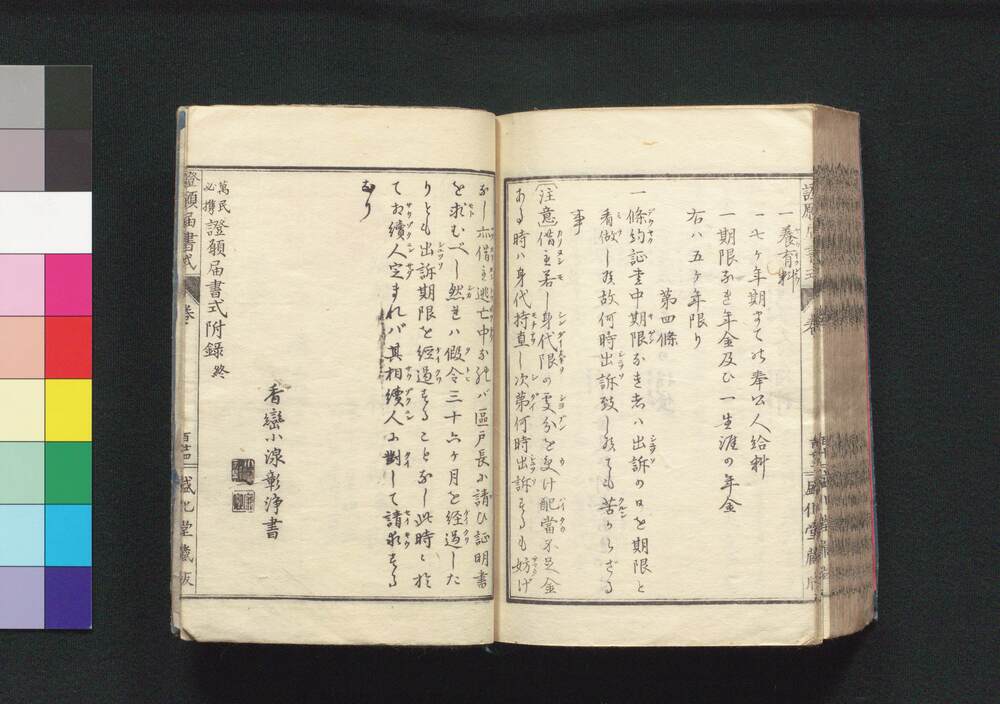 一養育料
一七ケ年期まての奉公人給料
一期限なき年金及ひ一生涯の年金
右ハ五ケ年限り
第四條
一條約証書中期限なき者ハ出訴の日を期限と
看做し候故何時出訴致し候ても苦からざる
事
(注意)借主若し身代限の受分を受け配當不足金
ある時ハ身代持直し次第何時出訴するも妨げ
なし亦借主逃亡中なれバ區戸長に請ひ証明書
を求むべし然れハ假令三十六ヶ月を経過した
りとも出訴期限を経過することなし此時に於
てハ相續人定まれバ其相續人に對して請求する
なり
萬民必携 證願届書式附錄 終
香巒小濱彰淨書
證願届書式
盛化堂蔵版